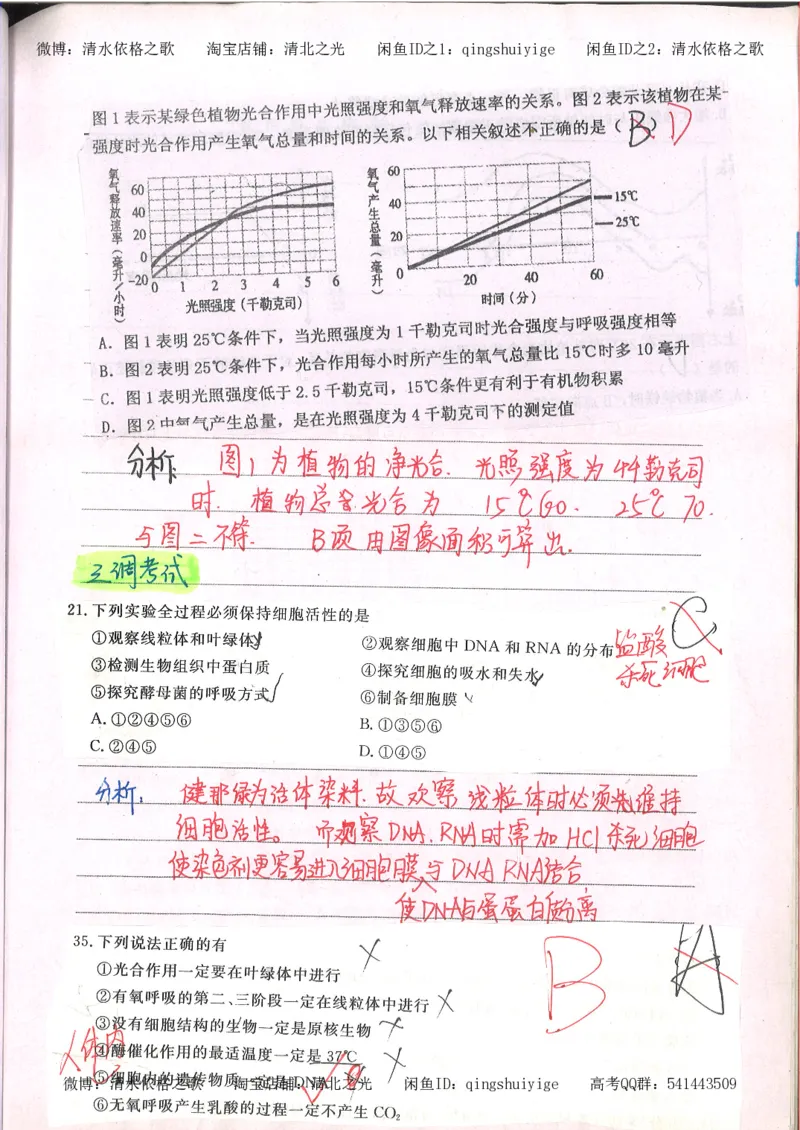 微博：清水依格之歌 淘宝店铺：清北之光 闲鱼ID之1：qingshuiyige 闲鱼ID之2：清水依格之歌
图1表示某绿色植物光合作用中光照强度和氧气释放速率的关系。图2表示该植物在某一
强度时光合作用产生氧气总量和时间的关系。以下相关叙述不正确的是（B）D
氧气释放速率（毫升/小时）
60
40
20
0
-20
0 1 2 3 4 5 6
光照强度（千勒克司）
氧气产生总量（毫升）
60
40
20
0
20 40 60
时间（分）
15℃
25℃
A．图1表明25℃条件下，当光照强度为1千勒克司时光合强度与呼吸强度相等
B．图2表明25℃条件下，光合作用每小时所产生的氧气总量比15℃时多10毫升
C．图1表明光照强度低于2.5千勒克司，15℃条件更有利于有机物积累
D．图2中氧气产生总量，是在光照强度为4千勒克司下的测定值
分析： 图1为植物的净光合．光照强度为4千勒克司
时．植物总会光合为 15℃60．25℃ 70．
与图二不符． B项由图像面积可算出．
三调考试
21.下列实验全过程必须保持细胞活性的是
C
①观察线粒体和叶绿体 ②观察细胞中DNA和RNA的分布
盐酸
杀死细胞
③检测生物组织中蛋白质 ④探究细胞的吸水和失水
⑤探究酵母菌的呼吸方式 ⑥制备细胞膜
A.①②④⑤⑥ B.①③⑤⑥
C.②④⑤ D.①④⑤
分析： 健那绿为活体染料．故观察线粒体时必须先维持
细胞活性。而观察DNA．RNA时需加HCl杀死细胞
使染色剂更容易进入细胞膜与DNA RNA结合
使DNA与蛋白质分离
35.下列说法正确的有
B A
①光合作用一定要在叶绿体中进行
②有氧呼吸的第二、三阶段一定在线粒体中进行
③没有细胞结构的生物一定是原核生物
人体内
④酶催化作用的最适温度一定是37℃
⑤细胞内的遗传物质一定是DNA
微博：清水依格之歌 淘宝店铺：清北之光 闲鱼ID：qingshuiyige 高考QQ群：541443509
⑥无氧呼吸产生乳酸的过程一定不产生CO₂